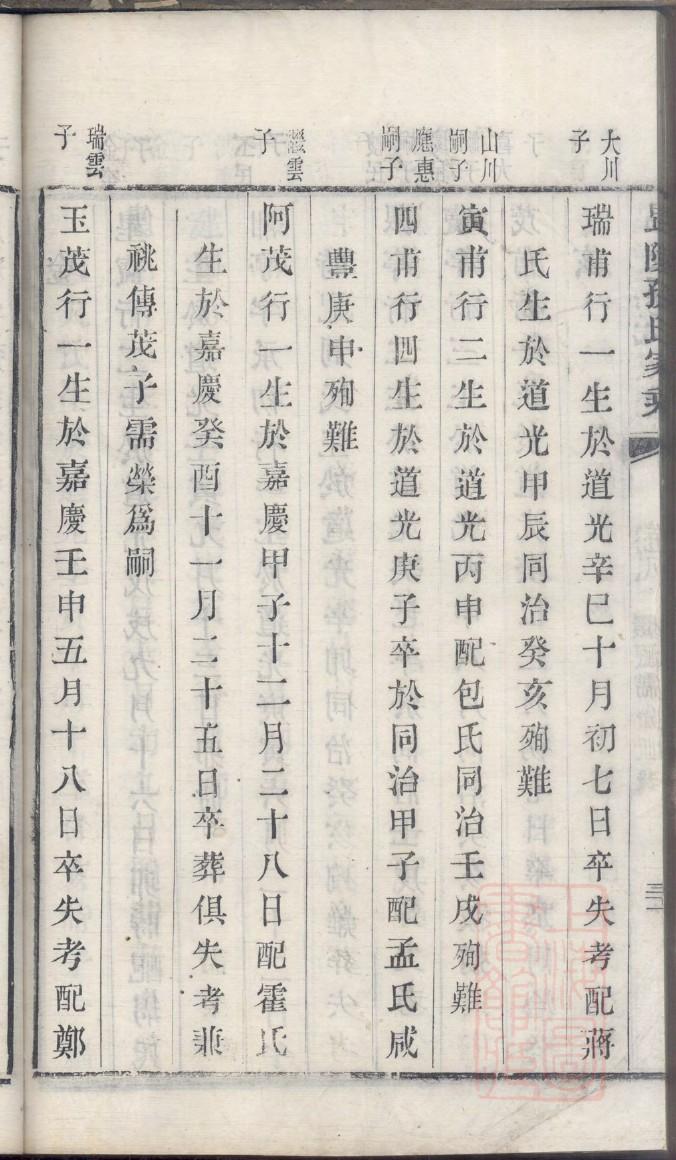 大川
子
瑞甫行一生於道光辛巳十月初七日卒失考配蔣
氏生於道光甲辰同治癸亥殉難
山川
嗣子
寅甫行二生於道光丙申配包氏同治壬戌殉難
應惠
嗣子
四甫行四生於道光庚子卒於同治甲子配孟氏咸
豐庚申殉難
雲
子
阿茂行一生於嘉慶甲子十二月二十八日配霍氏
生於嘉慶癸酉十一月二十五日卒葬俱失考兼
祧傳茂子需榮爲嗣
瑞雲
子
玉茂行一生於嘉慶壬申五月十八日卒失考配鄭